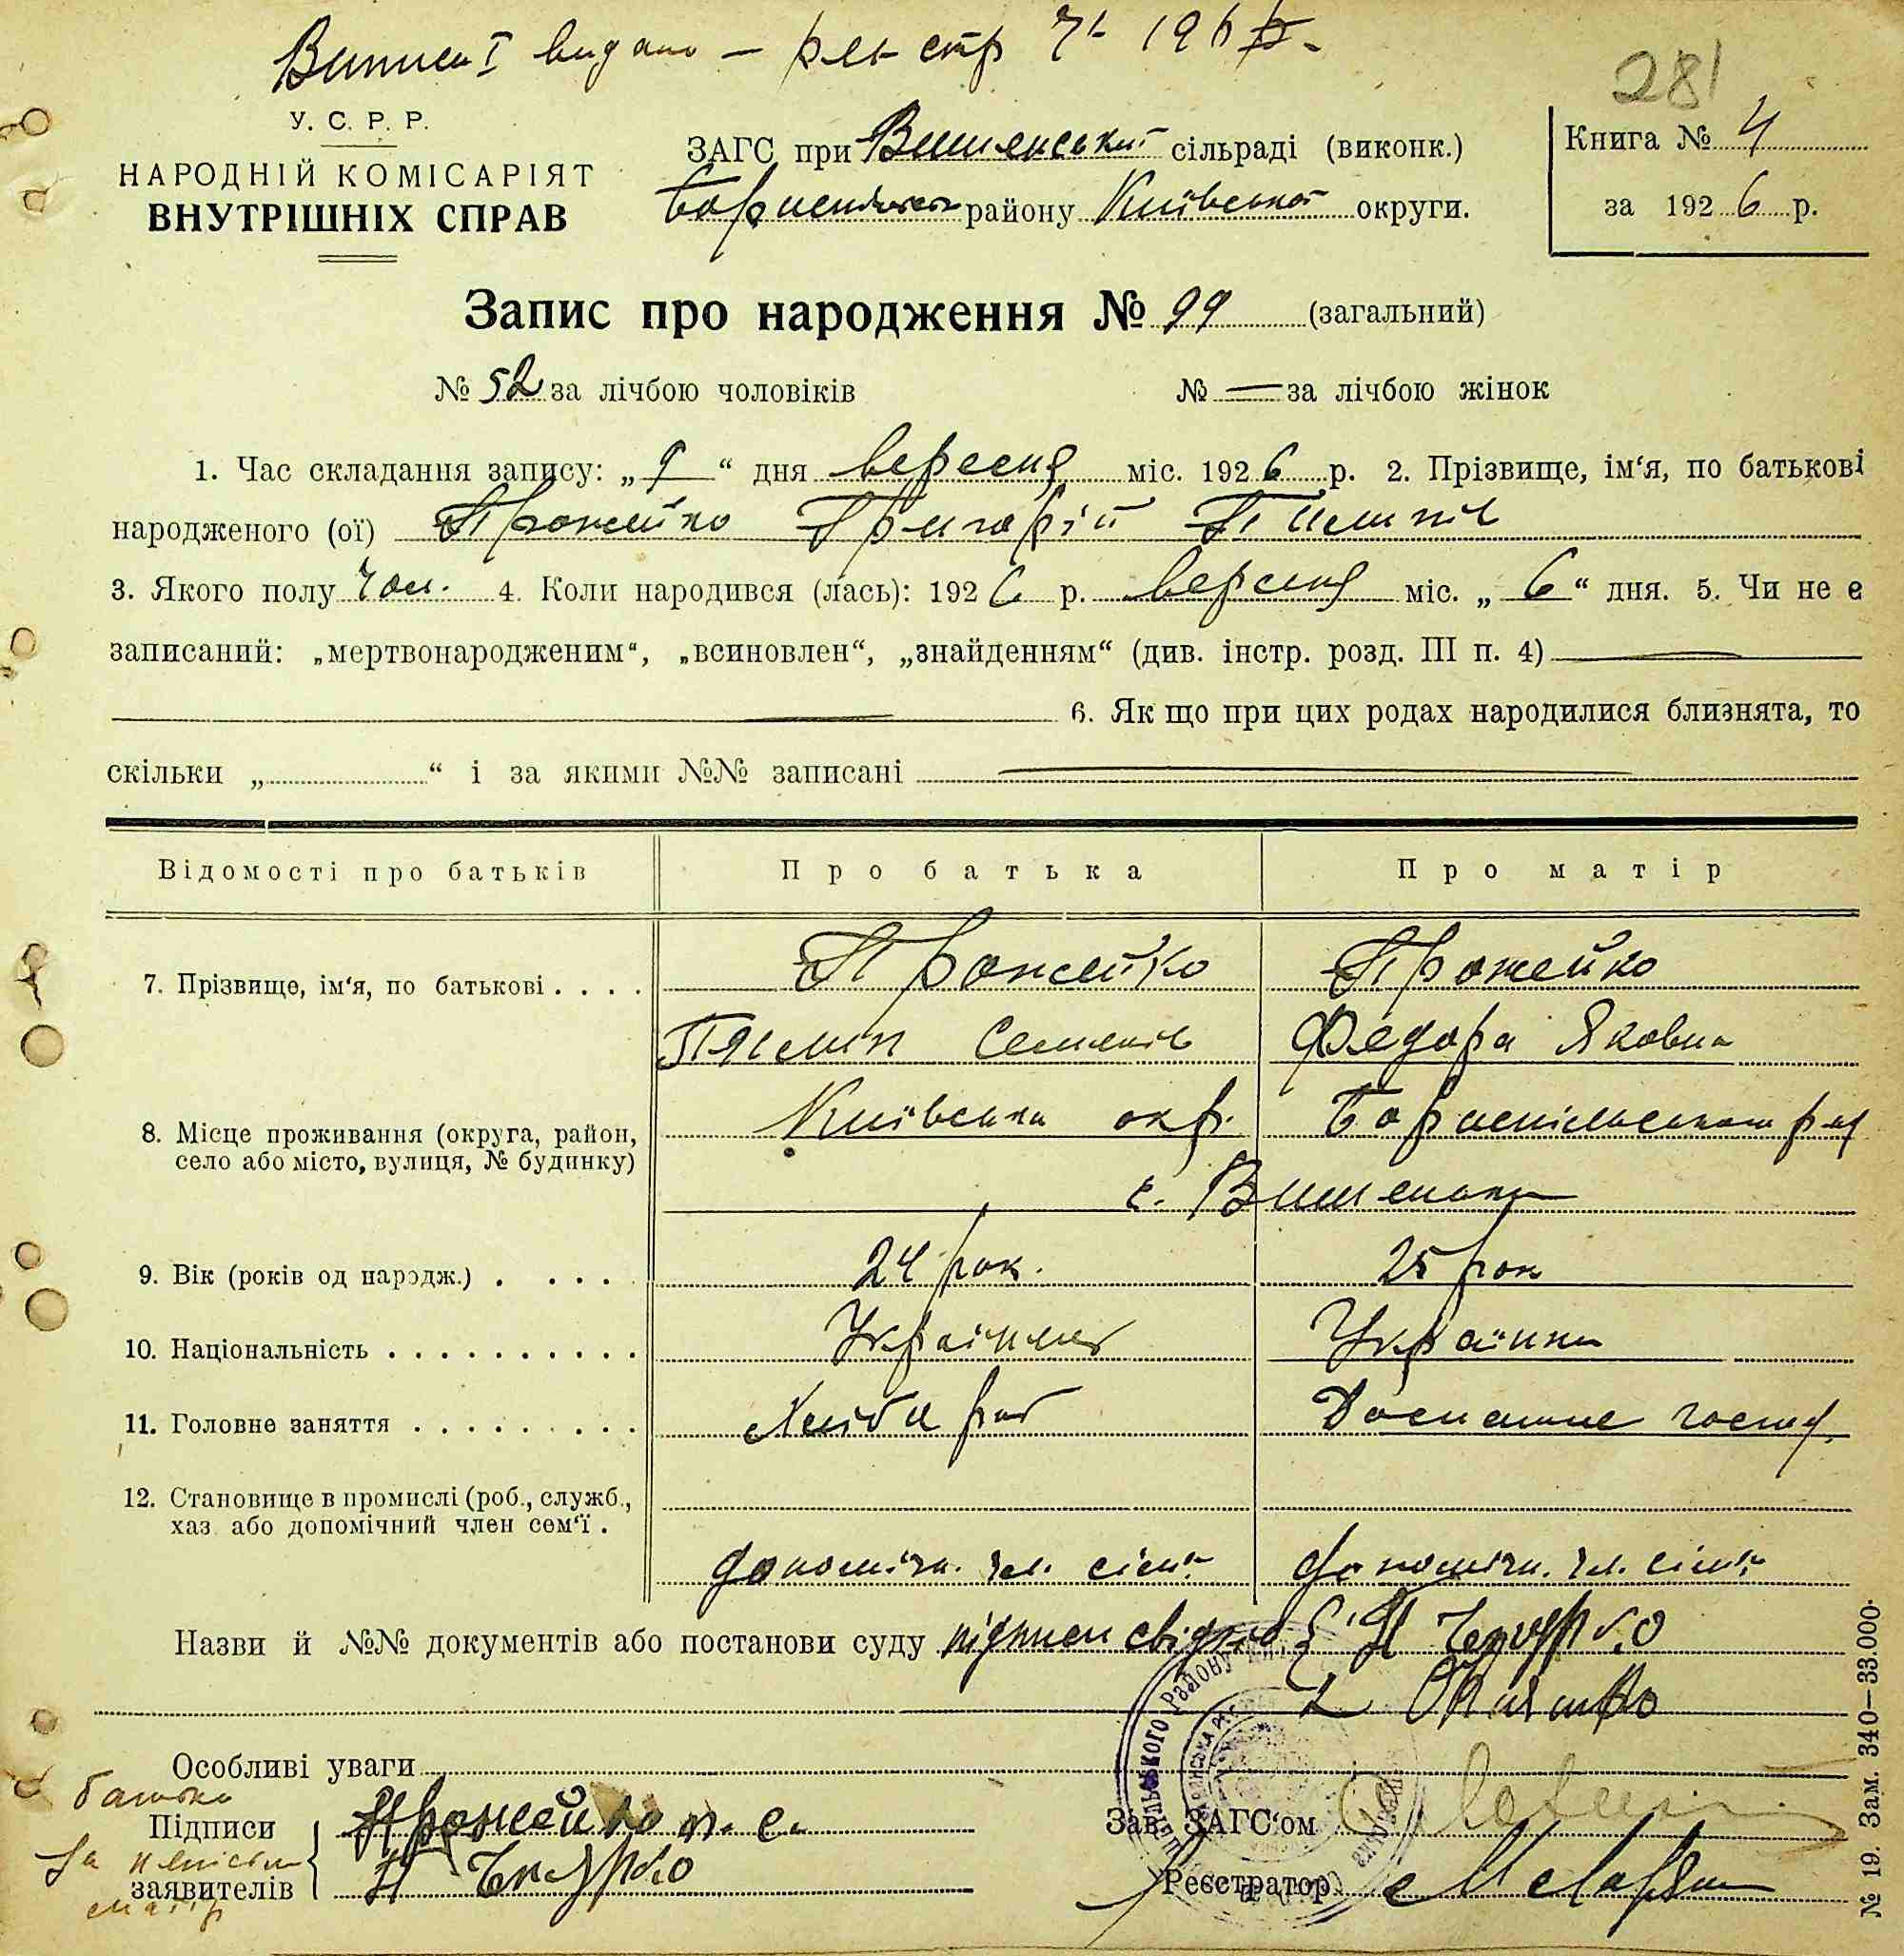 281
У. С. Р. Р.
НАРОДНІЙ КОМІСАРІЯТ
ВНУТРІШНІХ СПРАВ
ЗАГС при Вишенській сільраді (виконк.)
району Київської округи.
Книга № 4
за 1926 р.
Запис про народження № 99 (загальний)
№ 52 за лічбою чоловіків № — за лічбою жінок
1. Час складання запису: „9“ дня вересня міс. 1926 р. 2. Прізвище, ім‘я, по батькові
народженого (ої) Прожейко Григорій
3. Якого полу чол. 4. Коли народився (лась): 1926 р. вересня міс. „6“ дня. 5. Чи не е
записаний: „мертвонародженим“, „всиновлен“, „знайденням“ (див. інстр. розд. III п. 4)
6. Як що при цих родах народилися близнята, то
скільки „ “ і за якими №№ записані
Відомості про батьків Про батька Про матір
7. Прізвище, ім‘я, по батькові . . . . Прожейко Прожейко
Семенів Федора Яковна
8. Місце проживання (округа, район, село або місто, вулиця, № будинку) Київська окр. Бориспільського
с. Вишеньки
9. Вік (років од народж.) . . . . 24 рок. 25 рок
10. Національність . . . . . . . . . . Українец Українка
11. Головне заняття . . . . . . . . . Хлібороб Домашне господ.
12. Становище в промислі (роб., служб., хаз. або допомічний член сем‘ї .
допомічн. чл. сім‘ї допомічн. чл. сім‘ї
Назви й №№ документів або постанови суду підписи свідків
Особливі уваги
батько
Підписи
заявителів
Прожейко п. с.
за неписьм
матір
Зав. ЗАГС‘ом
Реєстратор
№ 19. Зам. 340—33.000.